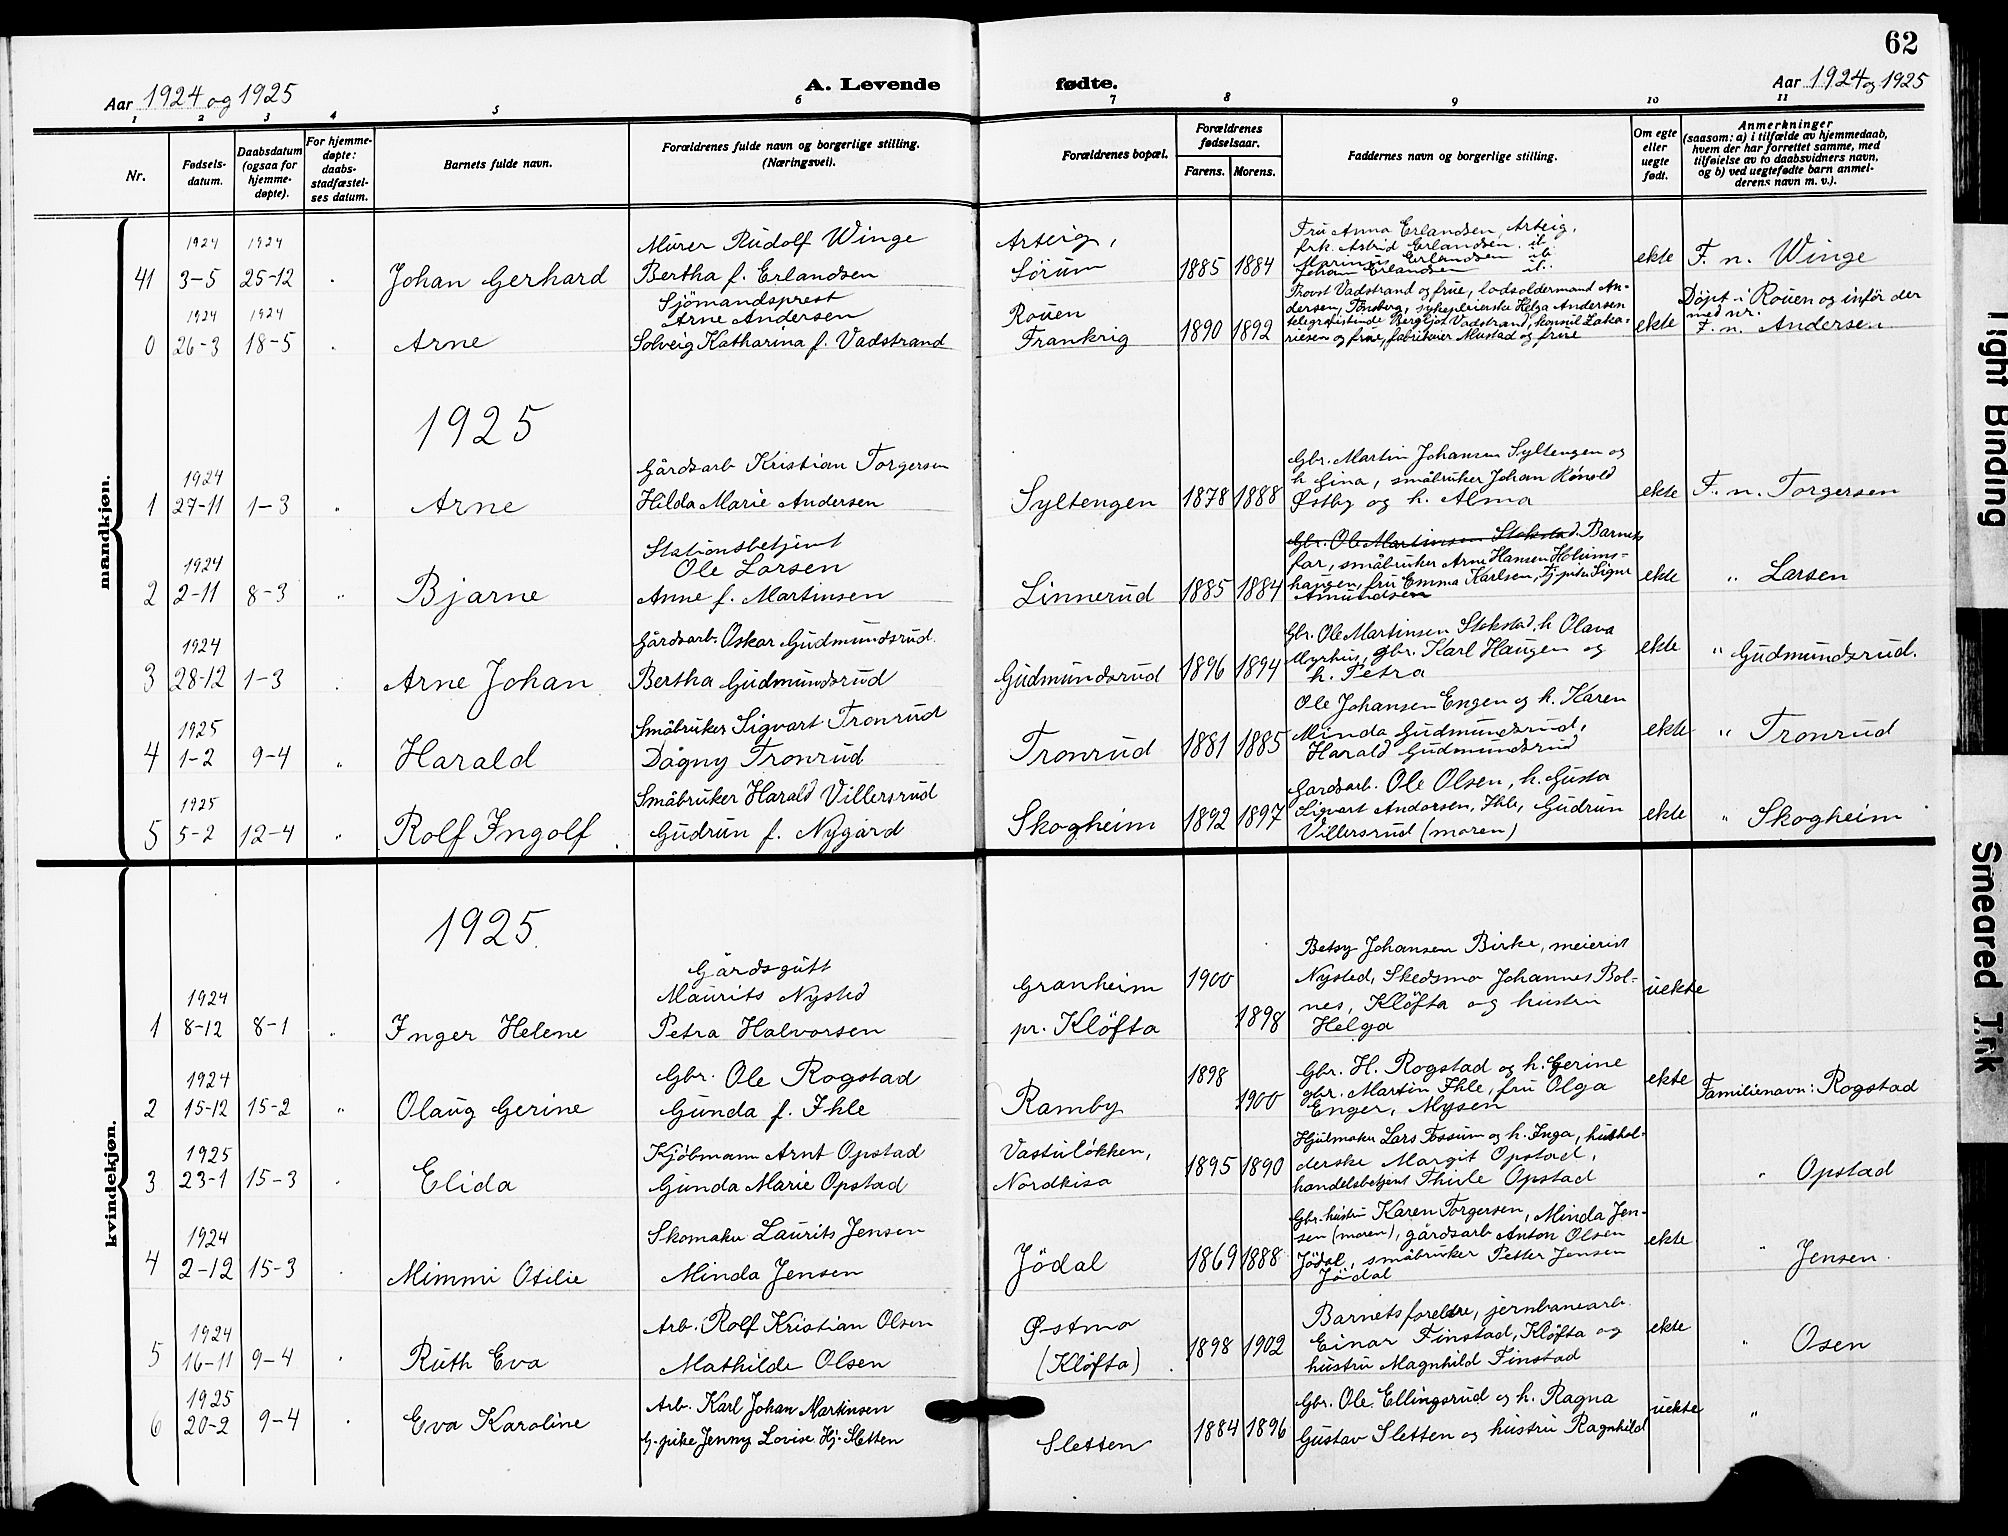 62
Aar 1924 og 1925
A. Levende fødte.
Aar 1924 og 1925
1 2 3 4 5 6 7 8 9 10 11
Nr.
Fødsels-
datum.
Daabsdatum
(ogsaa for
hjemme-
døpte).
For hjemme-
døpte:
daabs-
stadfæstel-
ses datum.
Barnets fulde navn.
Forældrenes fulde navn og borgerlige stilling.
(Næringsvei).
Forældrenes bopæl.
Forældrenes
fødselsaar.
Farens. Morens.
Faddernes navn og borgerlige stilling.
Om egte
eller
uegte
født.
Anmerkninger
(saasom: a) i tilfælde av hjemmedaab,
hvem der har forrettet samme, med
tilføielse av to daabsvidners navn,
og b) ved uegtefødte barn anmel-
derens navn m. v.).
mandkjøn.
41
1924
3-5
1924
25-12
Johan Gerhard
Murer Rudolf Winge
Bertha f. Erlandsen
Arteig,
Sørum
1885 1884
Fru Anna Erlandsen, Arteig,
frk. Astrid Erlandsen
Marinus Erlandsen
Johan Erlandsen
ekte
F. n. Winge
0
1924
26-3
1924
18-5
Arne
Sjömandsprest
Arne Andersen
Solveig Katharina f. Vadstrand
Rouen
Frankrig
1890 1892
Provst Vadstrand og frue, lodsoldermand An-
dersen, Tønsberg, sykepleierske Helga Andersen
telegrafistinde Bergljot Vadstrand, konsul Zaka-
riesen og frue, fabrikeier Mustad og frue
ekte
Döpt i Rouen og inför der
med nr.
F. n. Andersen
1925
1
1924
27-11
1-3
"
Arne
Gårdsarb Kristian Torgersen
Hilda Marie Andersen
Syltengen
1878 1888
Gbr. Martin Johansen Syltengen og
h Gina, småbruker Johan
Østby og h. Alma
ekte
F. n. Torgersen
2
1924
2-11
8-3
"
Bjarne
Stationsbetjent
Ole Larsen
Anne f. Martinsen
Linnerud
1885 1884
Gbr. Ole Martinsen Stokstad. Barnets
far, småbruker Arne Hansen Holums-
haugen, fru Emma Karlsen, Signe
Amundsen
ekte
" Larsen
3
1924
28-12
1-3
Arne Johan
Gårdsarb. Oskar Gudmundsrud.
Bertha Gudmundsrud
Gudmundsrud
1896 1894
Gbr. Ole Martinsen Stokstad, h Olava
Myrhus, gbr. Karl Haugen og
h. Petra
ekte
" Gudmundsrud.
4
1925
1-2
9-4
"
Harald
Småbruker Sigvart Tronrud
Dagny Tronrud
Tronrud
1881 1885
Ole Johansen Engen og h. Karen
Minda Gudmundsrud,
Harald Gudmundsrud
ekte
" Tronrud
5
1925
5-2
12-4
"
Rolf Ingolf
Småbruker Harald Villersrud
Gudrun f. Nygård
Skogheim
1892 1897
Gardsarb. Ole Olsen, h. Gusta
Sigvart Andersen, Ihle, Gudrun
Villersrud (moren)
ekte
" Skogheim
kvindekjøn.
1925.
1
1924
8-12
8-1
Inger Helene
Gårdsgutt
Maurits Nysted
Petra Halvorsen
Granheim
pr. Klöfta
1900
1898
Betsy Johansen Birke, meierist
Nysted, Skedsmo Johannes Bol-
nes, Klöfta og hustru
Helga
uekte
2
1924
15-12
15-2
"
Olaug Gerine
Gbr. Ole Rogstad
Gunda f. Ihle
Ramby
1898
1900
Gbr. H. Rogstad og h. Gerine
gbr. Martin Ihle, fru Olga
Enger, Mysen
ekte
Familienavn: Rogstad
3
1925
23-1
15-3
Elida
Kjöbmann Arnt Opstad
Gunda Marie Opstad
Vastuløkken,
Nordkisa
1895 1890
Hjulmaker Lars Fossum og h. Inga, hushol-
derske Margit Opstad,
handelsbetjent Opstad
" Opstad
4
1924
2-12
15-3
Mimmi Otilie
Skomaker Laurits Jensen
Minda Jensen
Jödal
1869 1888
Gbr. hustru Karen Torgersen, Minda Jen-
sen (moren), gårdsarb Anton Olsen
Jödal, småbruker Petter Jensen
Jödal
ekte
" Jensen.
5
1924
16-11
9-4
Ruth Eva
Arb. Rolf Kristian Olsen
Mathilde Olsen
Østmo
(Kløfta)
1898 1902
Barnets foreldre, jernbanearb.
Einar Finstad, Kløfta og
hustru Magnhild Finstad
ekte
" Osen
6
1925
20-2
9-4
Eva Karoline
Arb. Karl Johan Martinsen
Jenny Lovise Hj. Sletten
Sletten
1884 1896
Gbr. Ole Ellingsrud og h. Ragna
Gustav Sletten og hustru Ragnhild
uekte
"
Tight Binding
Smeared Ink